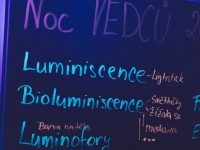 Noc VĚDCŮ 2
Luminiscence - Lightstick
Bioluminiscence - Světlušky
Žížala sv.
medúza
...
Barva na tělo
Luminofory